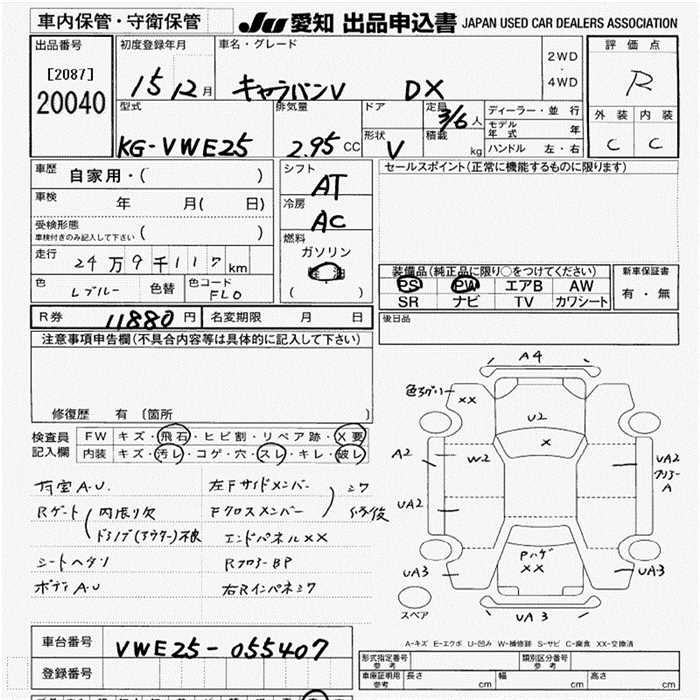 車内保管・守衛保管
JU 愛知 出品申込書 JAPAN USED CAR DEALERS ASSOCIATION
出品番号
[2087]
20040
初度登録年月
15 12月
車名・グレード
キャラバンV DX
2WD
・
4WD
評価点
R
外装 内装
C C
型式
KG-VWE25
排気量
2.95 CC
ドア
形状
V
定員
3/6人
積載
kg
ディーラー・並行
モデル年式 年
ハンドル 左・右
車歴
自家用・( )
車検
年 月( 日)
受検形態
車検付きのみ記入して下さい ( )
走行
24万9千117km
色
Lブルー
色替
色コード
FL0
シフト
AT
冷房
AC
燃料
ガソリン
( )
セールスポイント(正常に機能するものに限ります)
装備品(純正品に限り○をつけてください)
PS PW エアB AW
SR ナビ TV カワシート
新車保証書
有・無
R券 11880円
名変期限 月 日
後日品
注意事項申告欄(不具合内容等は具体的に記入して下さい)
修復歴 有 〔箇所 〕
検査員
記入欄
FW キズ・飛石・ヒビ割・リペア跡・X要
内装 キズ・汚レ・コゲ・穴・スレ・キレ・破レ
Rゲート
内張り欠
シートヘタリ
ボディA・U
左Fサイドメンバー
Fクロスメンバー
エンドパネルXX
RフロアーBP
右Rインパネシワ
シワ
修復
A4
XX
U2
X
A2
W2
UA2
UA2
A
Pハゲ
XX
UA3
UA3
UA3
スペア
A-キズ E-エクボ U-凹み W-補修跡 S-サビ C-腐食 XX-交換済
車台番号
VWE25-055407
登録番号
形式指定番号
参考
類別区分番号
参考
車庫証明用
参考
長さ cm
幅 cm
高さ cm